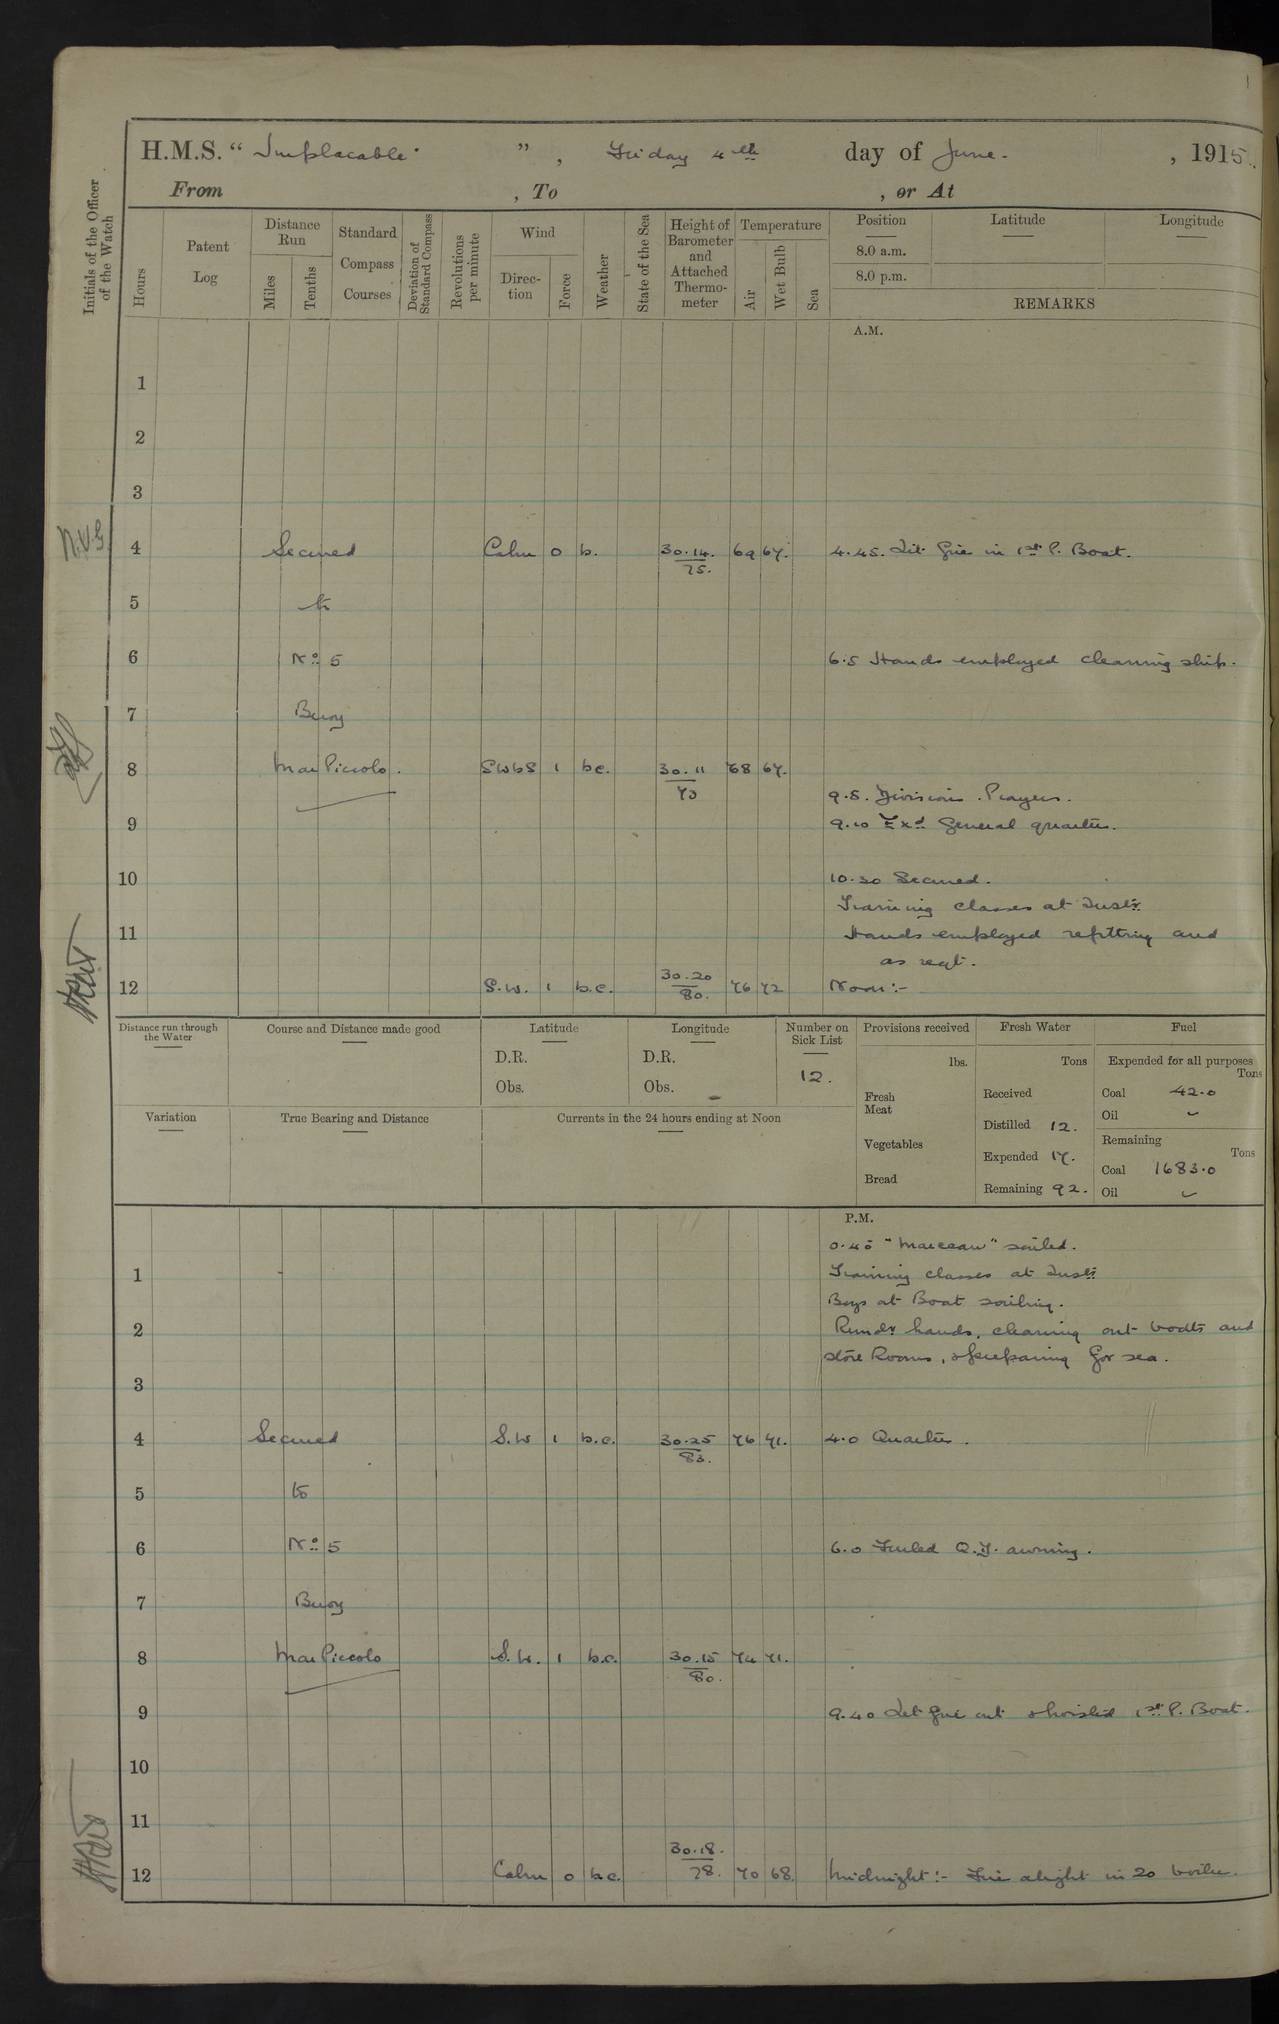 H.M.S. " Implacable " , Friday 4th day of June. , 1915.
From , To , or At
Initials of the Officer of the Watch
Hours
Patent Log
Distance Run
Miles
Tenths
Standard Compass Courses
Deviation of Standard Compass
Revolutions per minute
Wind
Direction
Force
Weather
State of the Sea
Height of Barometer and Attached Thermometer
Temperature
Air
Wet Bulb
Sea
Position Latitude Longitude
8.0 a.m.
8.0 p.m.
REMARKS
A.M.
1
2
3
4 Secured Calm 0 b. 30.14. 69 67. 4.45. Lit fire in 1st P. Boat.
75.
5 to
6 No 5 6.5 Hands employed cleaning ship.
7 Buoy
8 Mar Piccolo. SWbS 1 bc. 30.11 68 67.
73
9.5. Divisions. Prayers.
9 9.10 Exd General quarters.
10 10.30 Secured.
Training classes at Instr.
11 Hands employed refitting and
as reqt.
12 S.W. 1 b.c. 30.20 76 72 Noon:-
80.
Distance run through the Water
Course and Distance made good
Latitude
D.R.
Obs.
Longitude
D.R.
Obs.
Number on Sick List
12.
Variation
True Bearing and Distance
Currents in the 24 hours ending at Noon
Provisions received
lbs.
Fresh Meat
Vegetables
Bread
Fresh Water
Tons
Received
Distilled 12.
Expended 17.
Remaining 92.
Fuel
Expended for all purposes
Tons
Coal 42.0
Oil
Remaining
Tons
Coal 1683.0
Oil
P.M.
sailed.
1 Training classes at Instr.
Boys at Boat sailing.
2 Remdr hands, cleaning out boats and
store Rooms, & preparing for sea.
3
4 Secured S.W 1 b.c. 30.25 76 71. 4.0 Quarters.
83.
5 to
6 No 5 6.0 Furled Q.D. awning.
7 Buoy
8 Mar Piccolo S.W. 1 b.c. 30.15 74 71.
80.
9 9.40 Let fire out & hoisted 1st P. Boat.
10
11
30.18.
12 Calm 0 b.c. 78. 70 68. Midnight:- Fires alight in 20 boilers.